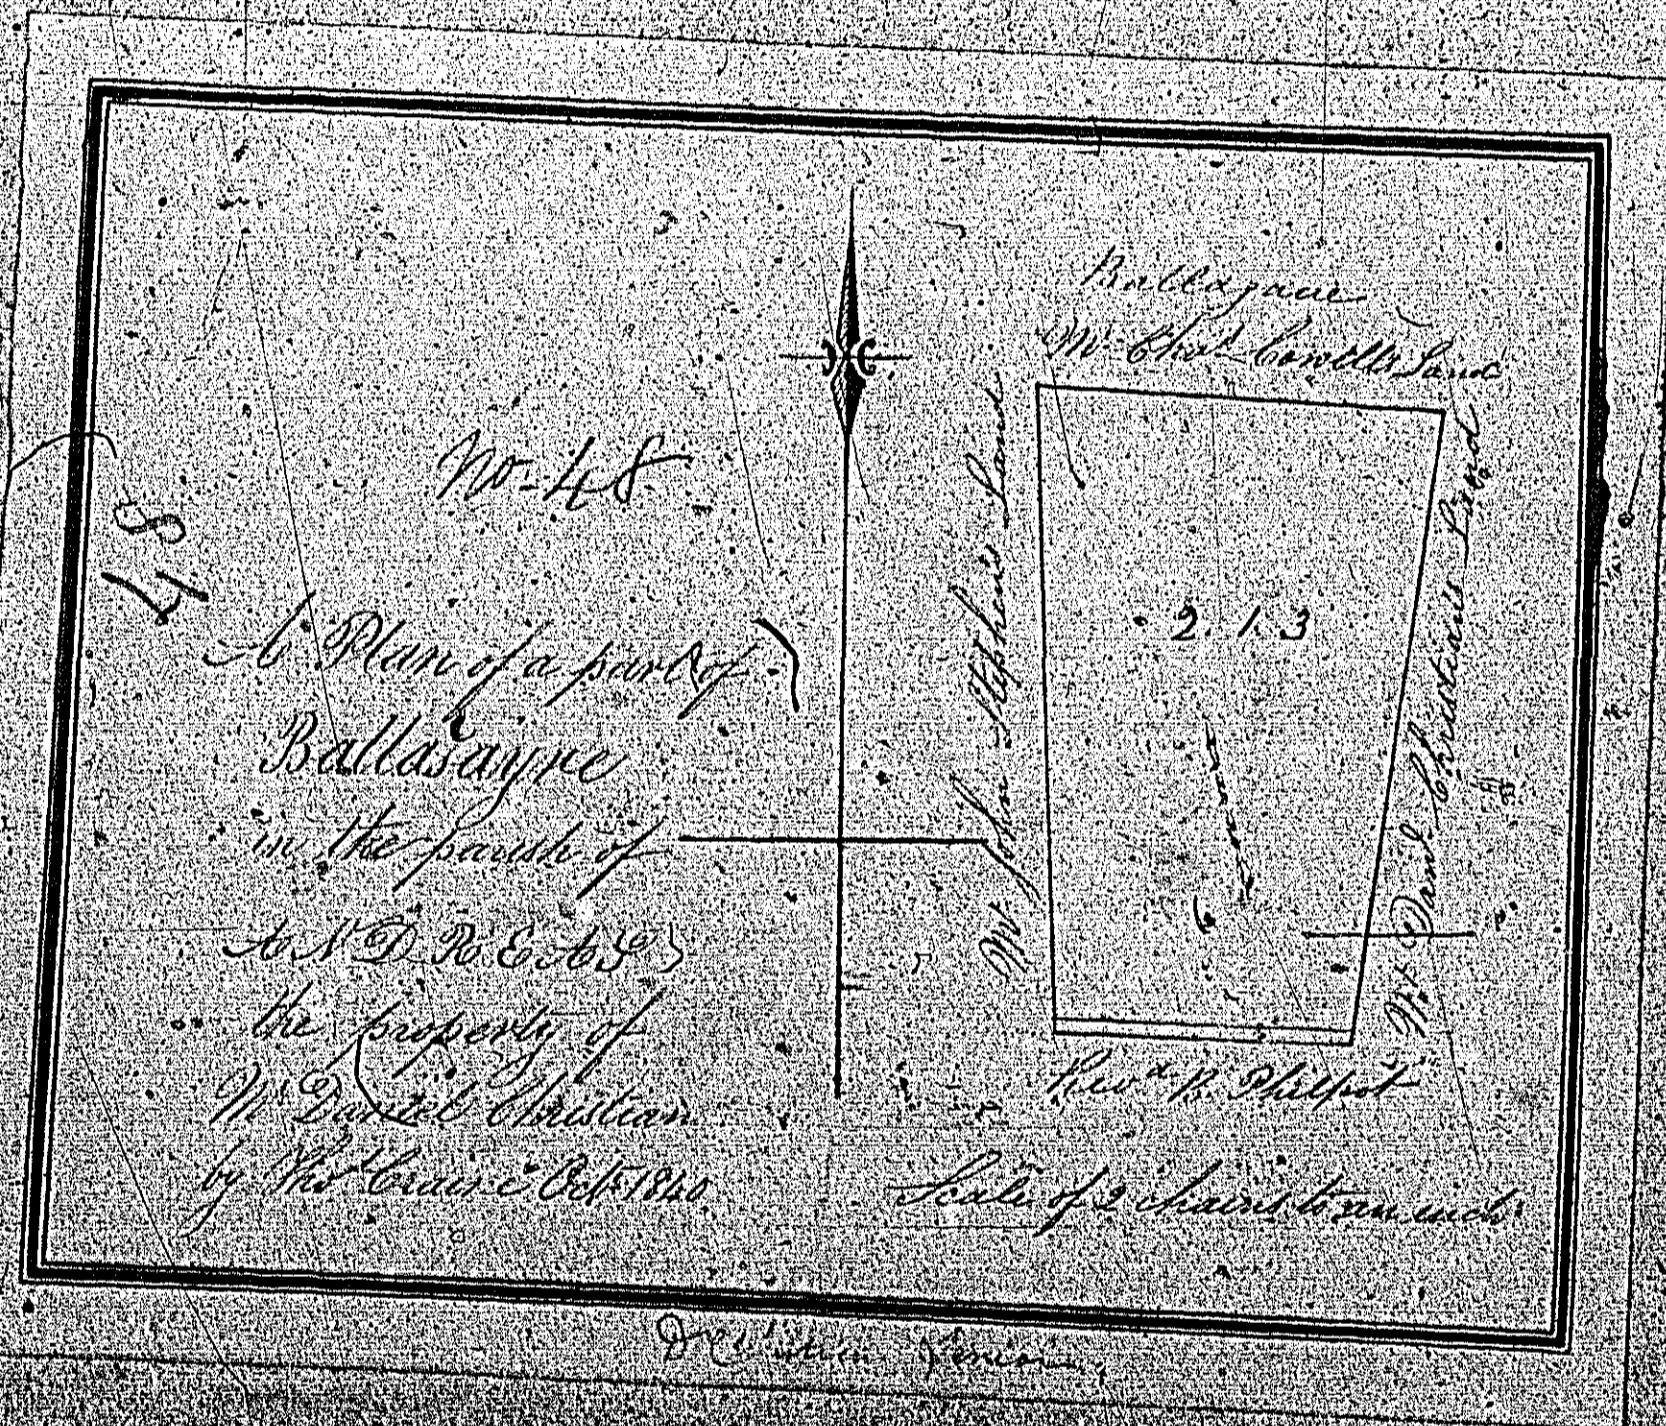 No. 48
48
A Plan of a part of
Ballasayne
in the parish of
ANDREAS
the property of
Mr Daniel Christian
by Thos Craine Octr 1840
Mr Thos Cowells Land
Mr John Stephens Land
2. 1. 3
Mr Danl Christians Land
Revd B. Philpot
Scale of 2 chains to an inch